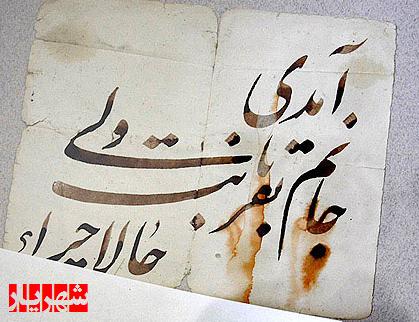 آمدی
جانم بقربانت ولی
حالا چرا؟
شهریار